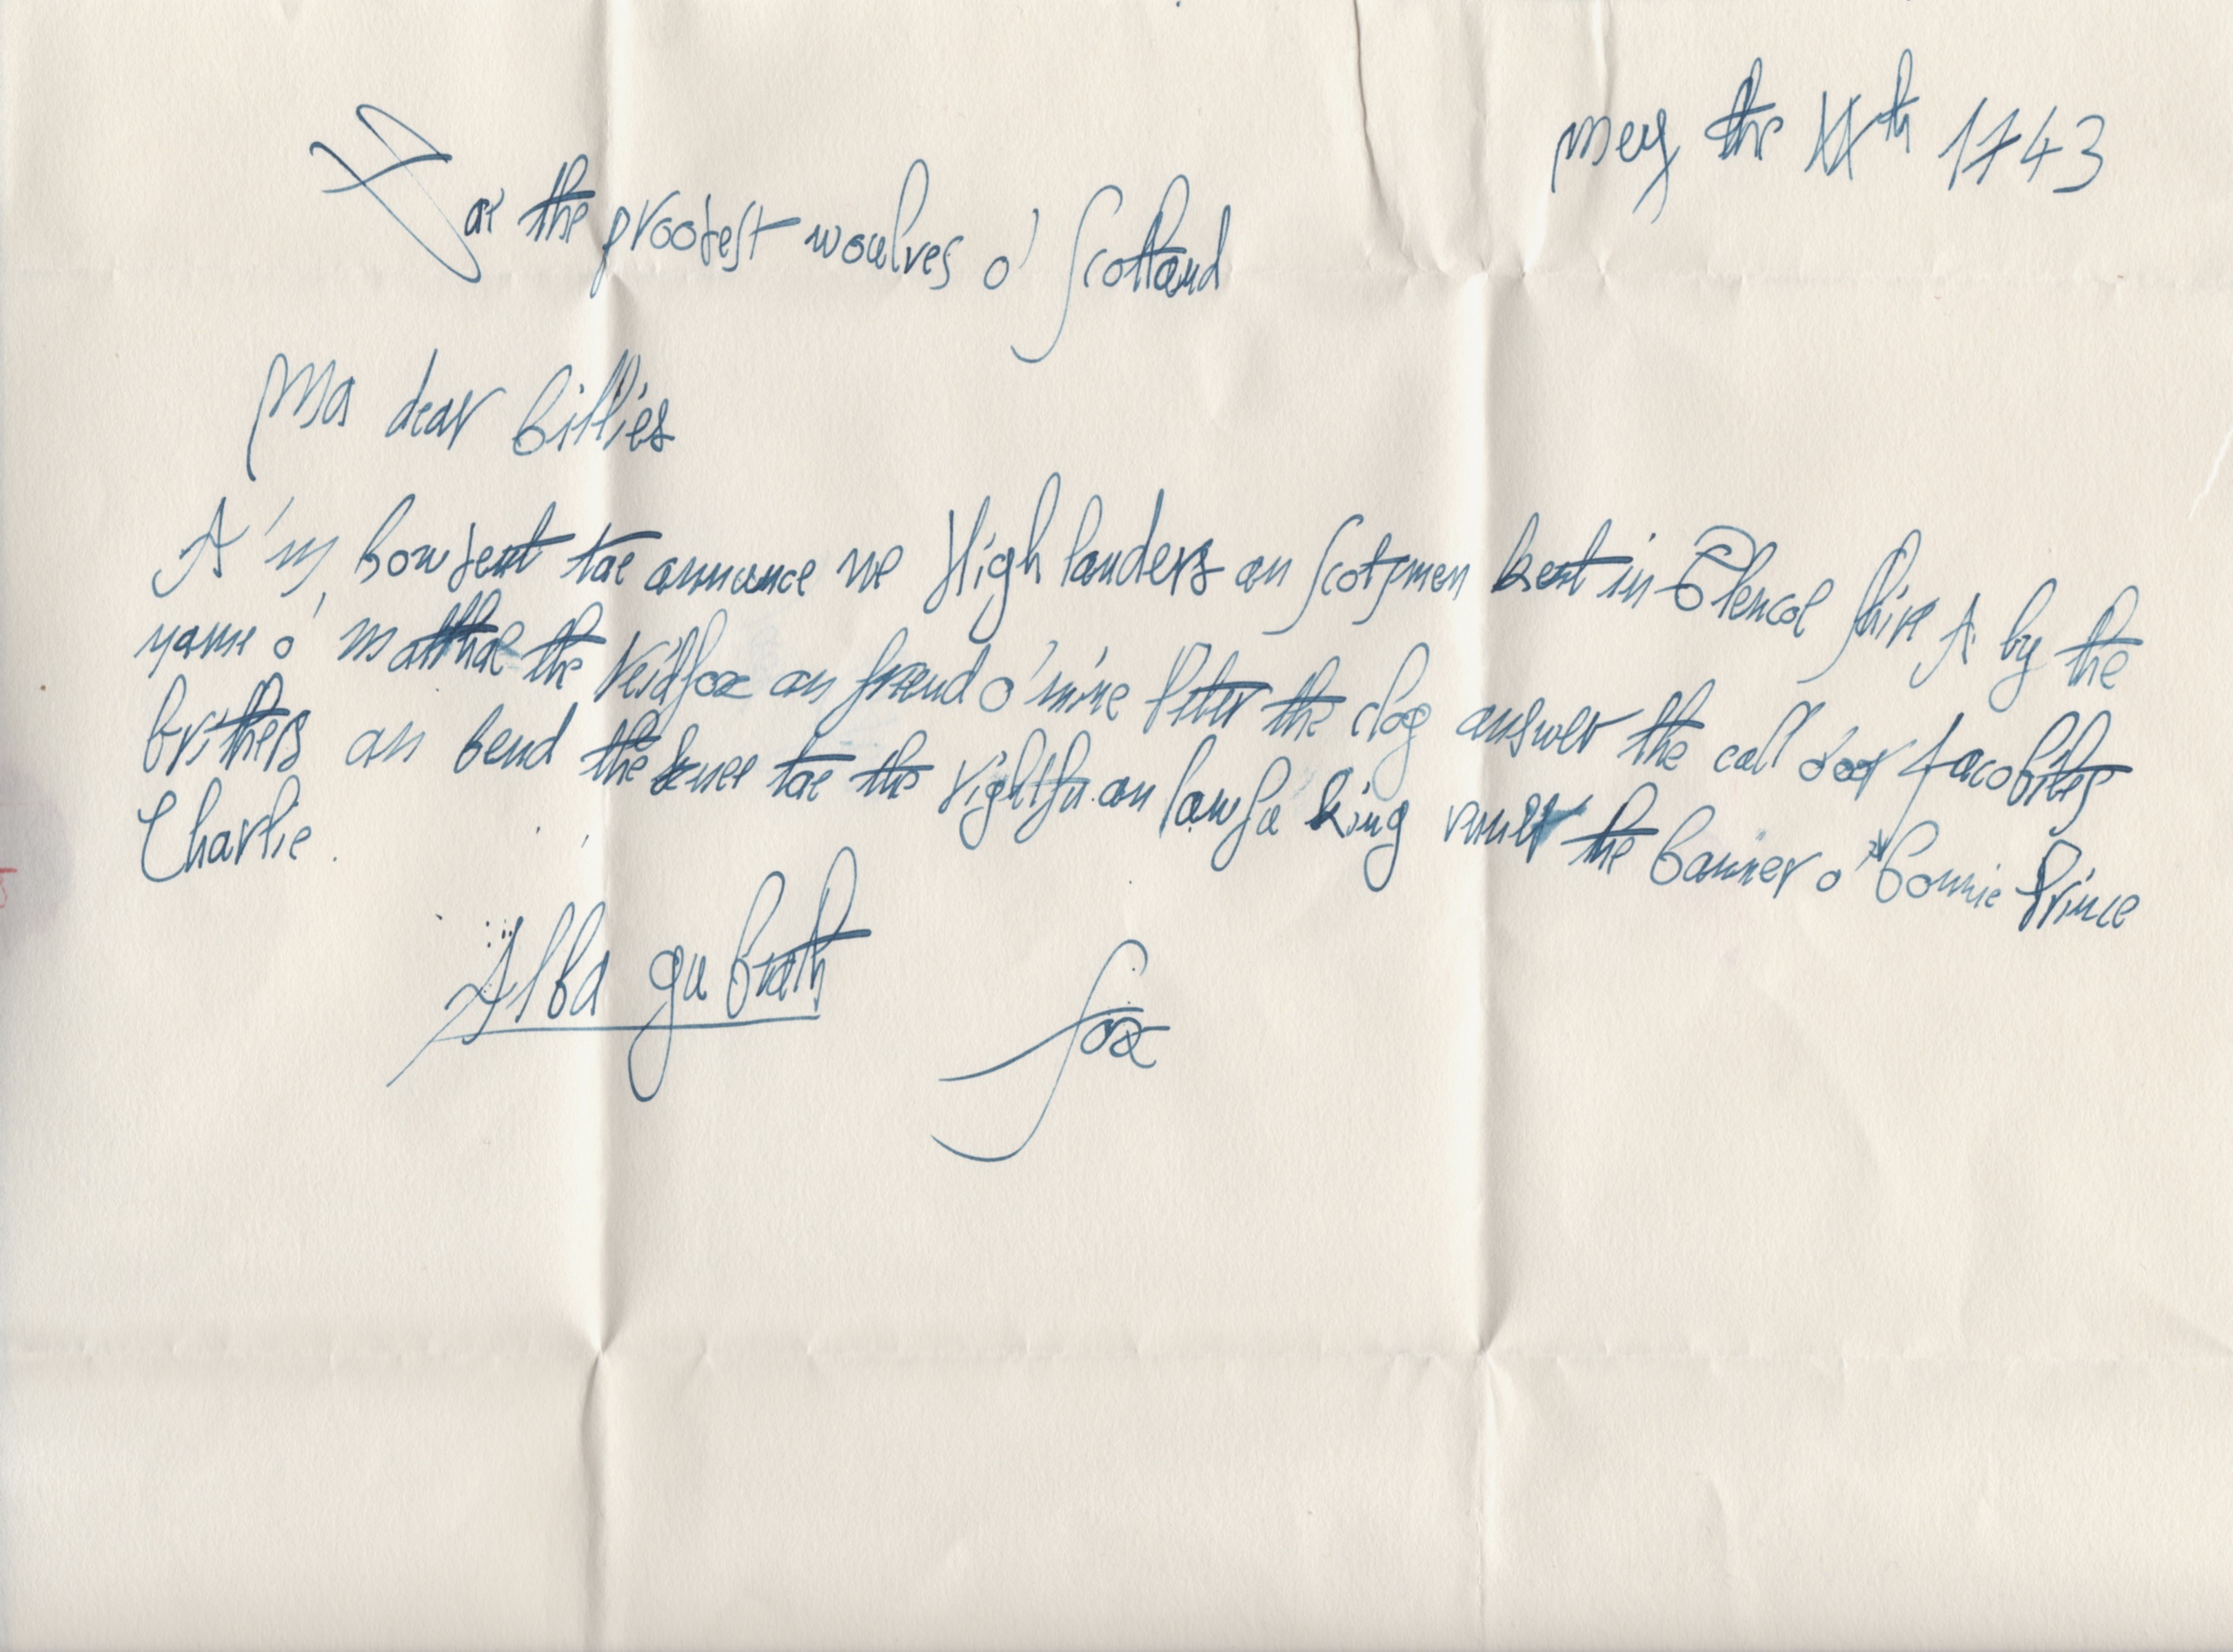 Mey the XXth 1743
For the proodest woulves o' Scotland
Ma dear billies
A'm bowsent tae annunce we Highlanders an Scotsmen kent in Glencol shire A by the
name o' Matthal the Reidfox an friend o' mine Peter the dog answer the call o' oor Jacobites
brithers an bend the knee tae the rightfu an lawfu king the banner o' Bonnie Prince
Charlie.
Alba gu brath
fox